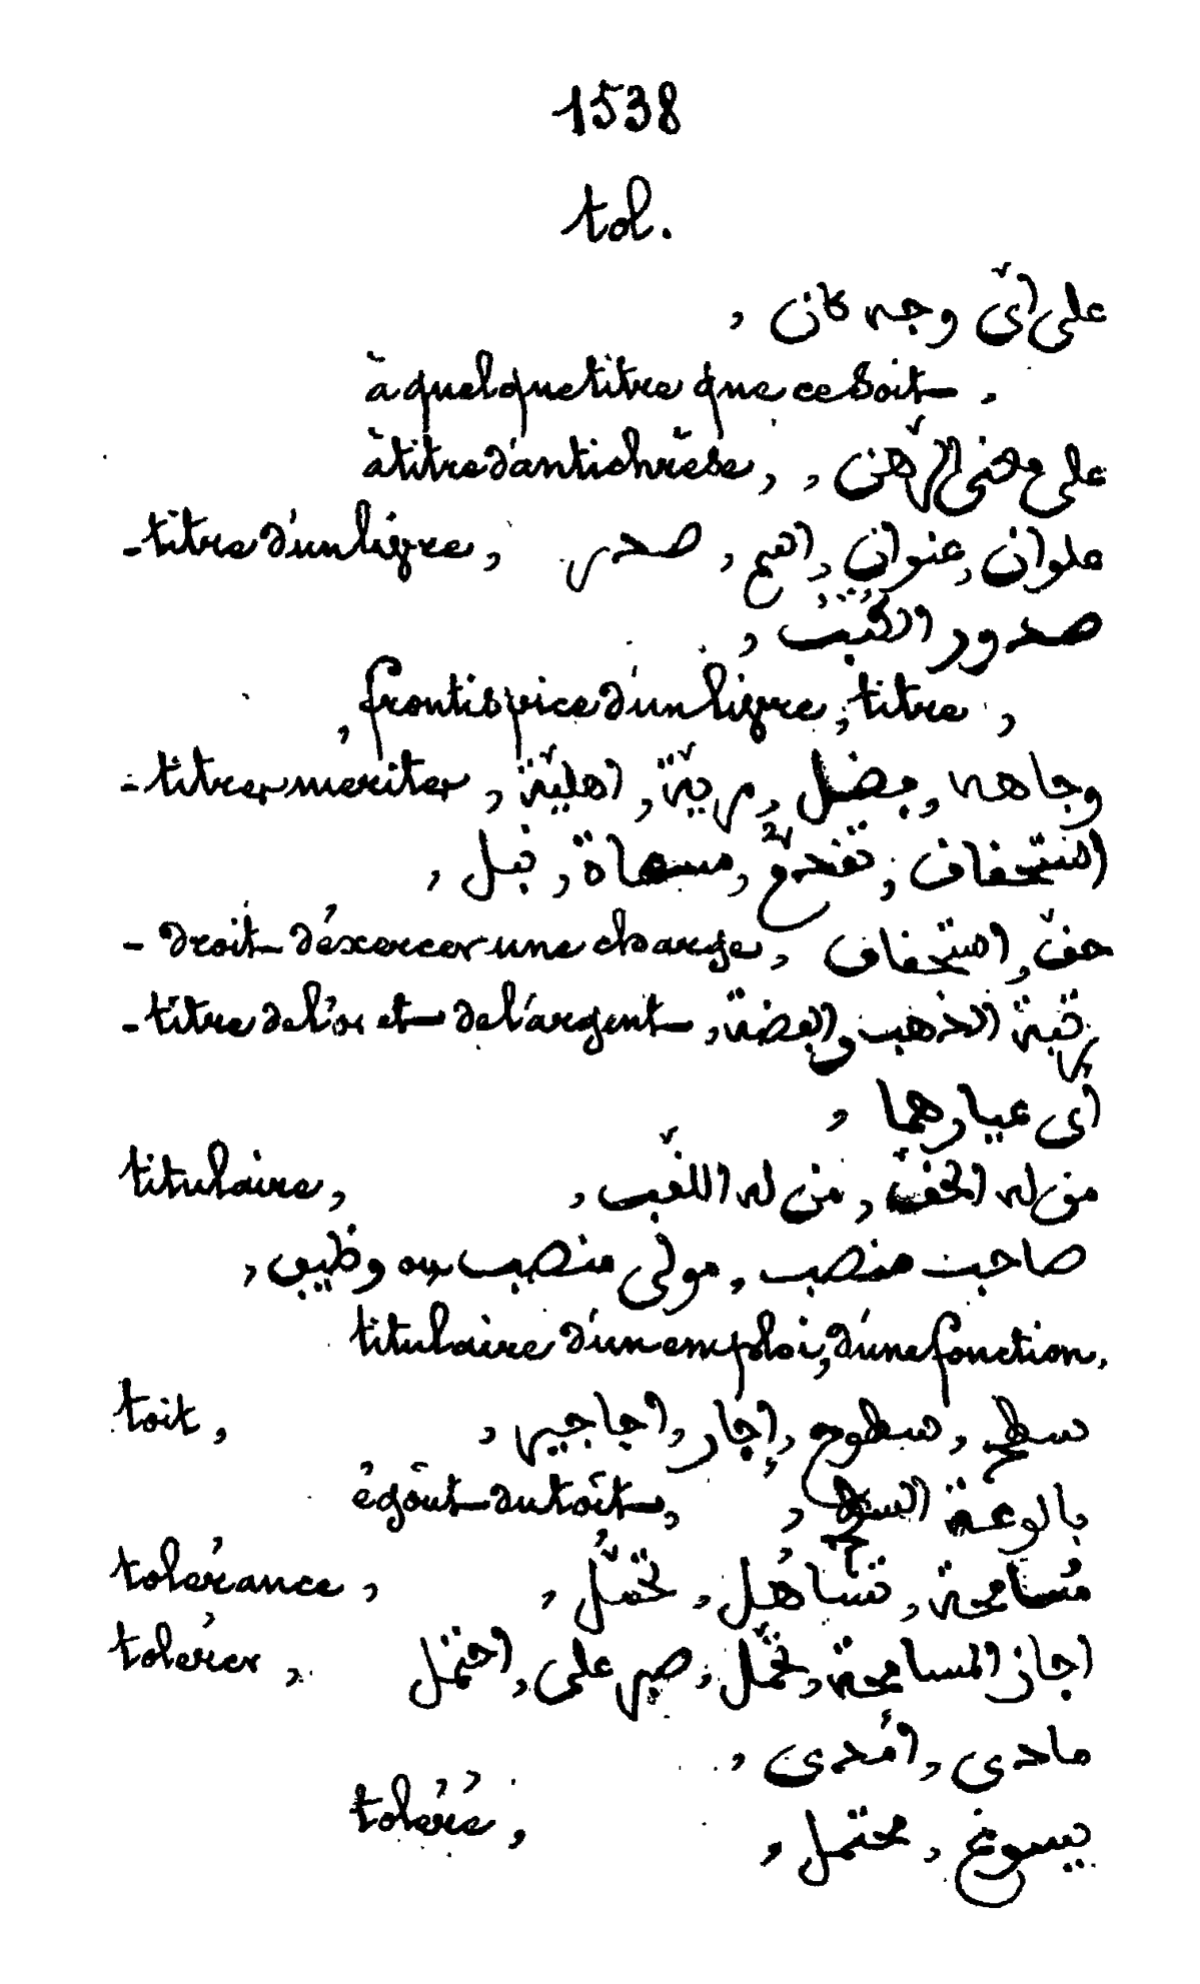 1538
tol.
على اىّ وجه كان ,
à quelque titre que ce soit .
à titre d'antichrèse, , على معنى الرّهن
- titre d'un livre, علوان, عنوان, اسم, صدر
صدور الكُتُبْ ,
frontispice d'un livre, titre, ,
- titre, mériter, وجاهه, بضل, مزيّة, اهليّة
استحفاف, تفدّم, مسعاة, نبل ,
- droit d'éxercer une charge, حفّ, استحفاف
- titre de l'or et de l'argent, رتبة الذهب والبضة
اى عيارهما ,
titulaire, من له الحفّ, من له اللّفب ,
صاحب منصب, مولى منصب ou وظيف ,
titulaire d'un emploi, d'une fonction.
toit, سطح, سطوح, إجّار, اجاجير ,
égôut du toît, بالوعة السطح ,
tolérance, مُسامحة, تسَاهُل, تحمُّل ,
tolérer, اجاز المسامحة, تحمّل, صبر على, احتمل
مادى, اَمْدى ,
toléré, يسوغ, محتمل ,